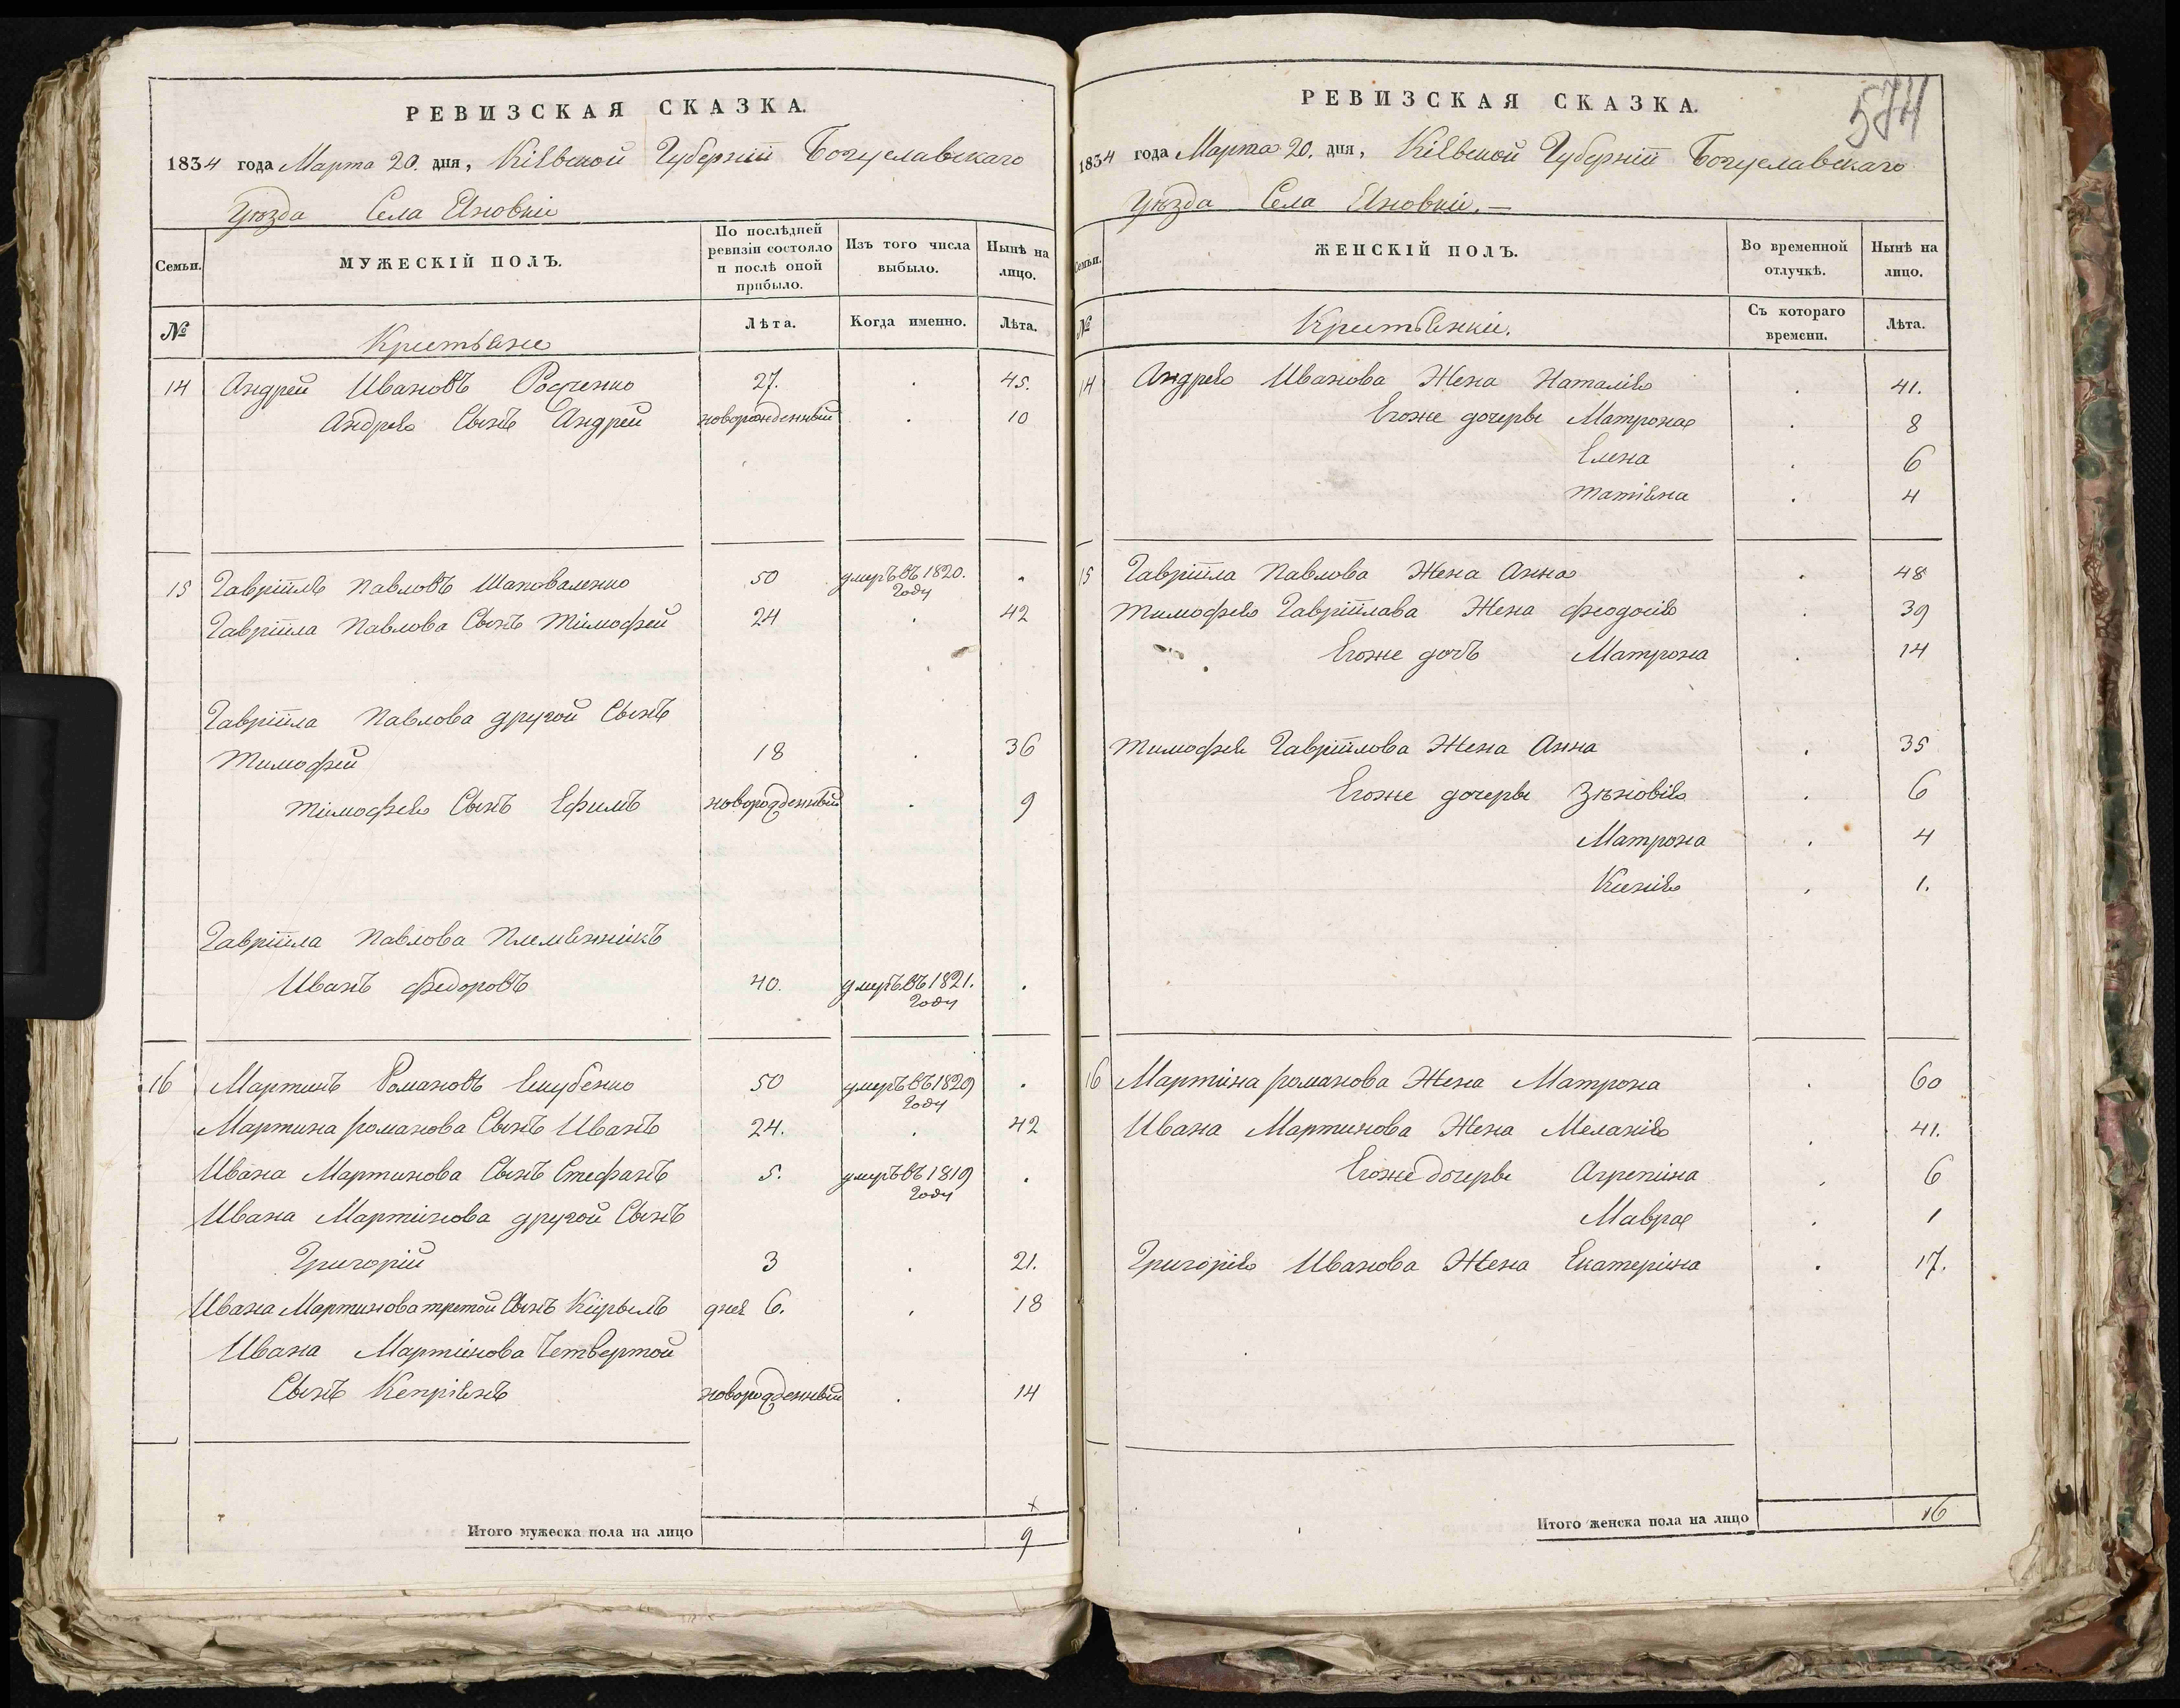 РЕВИЗСКАЯ СКАЗКА.
1834 года Марта 20. дня, Кіевской Губерніи Богуславскаго
Уѣзда Села Яновки
Семьи.
МУЖЕСКІЙ ПОЛЪ.
По послѣдней ревизіи состояло и послѣ оной прибыло.
Изъ того числа выбыло.
Нынѣ на лицо.
№
Крестьяне
Лѣта.
Когда именно.
Лѣта.
14 Андрей Ивановъ 27. . 45.
Андрея Сынъ Андрей новорожденный . 10
15 Гавріилъ Павловъ Шаповаленко 50 умеръ въ 1820. Году .
Гавріила Павлова Сынъ Тимофей 24 . 42
Гавріила Павлова другой Сынъ
Тимофей 18 . 36
Тимофея Сынъ Ефимъ новорожденный . 9
Гавріила Павлова Племянникъ
Иванъ Федоровъ 40. умеръ въ 1821. Году .
16 Мартинъ Романовъ 50 умеръ въ 1829 Году .
Мартина Романова Сынъ Иванъ 24. . 42
Ивана Мартинова Сынъ Стефанъ 5. умеръ въ 1819 Году .
Ивана Мартинова другой Сынъ
Григорій 3 . 21.
Ивана Мартинова третой Сынъ Кирылъ дней 6. . 18
Ивана Мартинова Четвертой
Сынъ Кепріянъ новорожденный . 14
Итого мужеска пола на лицо 9
574
РЕВИЗСКАЯ СКАЗКА.
1834 года Марта 20. дня, Кіевской Губерніи Богуславскаго
Уѣзда Села Яновки.—
Семьи.
ЖЕНСКІЙ ПОЛЪ.
Во временной отлучкѣ.
Нынѣ на лицо.
№
Крестьянки.
Съ котораго времени.
Лѣта.
14 Андрея Иванова Жена Наталія . 41.
Егоже дочеры Матрона . 8
Елена . 6
Татіяна . 4
15 Гавріила Павлова Жена Анна . 48
Тимофея Гавріилава Жена Феодосія . 39
Егоже дочъ Матрона . 14
Тимофея Гавріилова Жена Анна . 35
Егоже дочеры Зѣновія . 6
Матрона . 4
Ксенія . 1.
16 Мартина Романова Жена Матрона . 60
Ивана Мартинова Жена Меланія . 41.
Егоже дочеры Агрепина . 6
Мавра . 1
Григорія Иванова Жена Екатерина . 17.
Итого женска пола на лицо 16